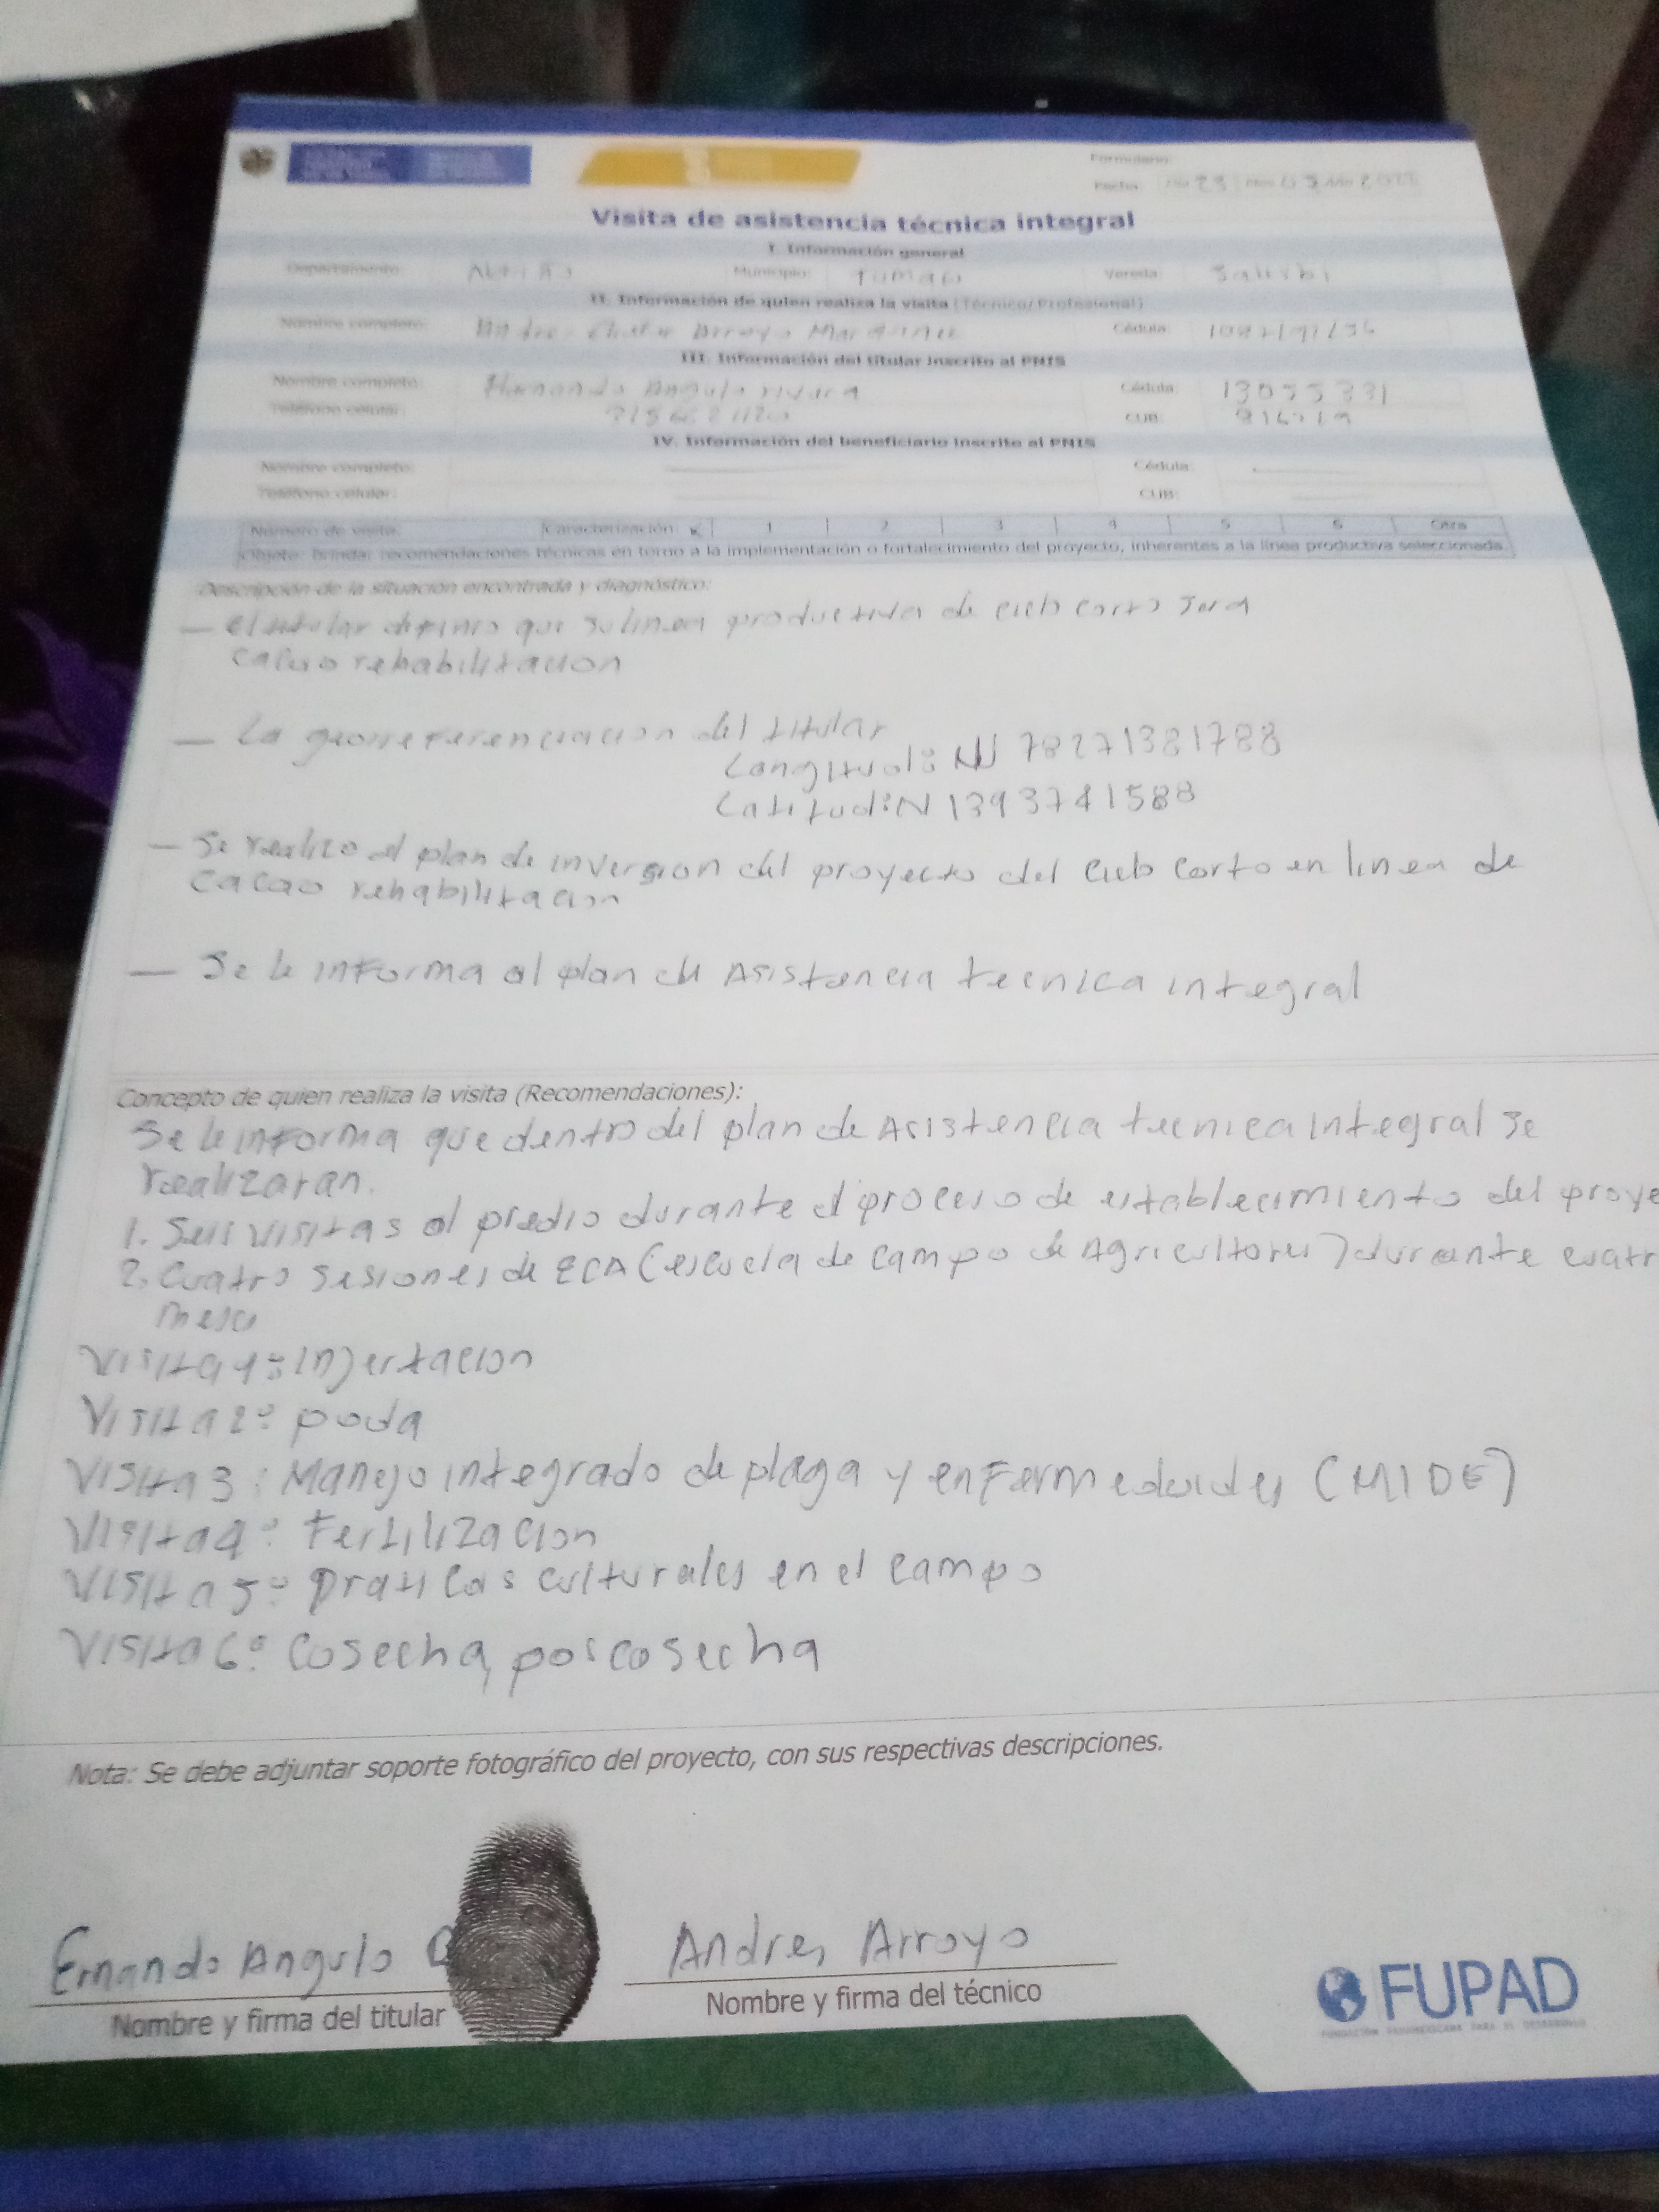 Formulario:
Fecha: Día 23 Mes 03 Año
Visita de asistencia técnica integral
I. Información general
Departamento: Nariño Municipio: Tumaco Vereda: Sallybi
II. Información de quien realiza la visita (Técnico/Profesional)
Nombre completo: Andres Arroyo Martinez Cédula:
III. Información del titular inscrito al PNIS
Nombre completo: Hernando Angulo rivera Cédula: 13055331
Teléfono celular: CUB:
IV. Información del beneficiario inscrito al PNIS
Nombre completo: Cédula:
Teléfono celular: CUB:
Número de visita: Caracterización x 1 2 3 4 5 6 Otra
Objeto: brindar recomendaciones técnicas en torno a la implementación o fortalecimiento del proyecto, inherentes a la línea productiva seleccionada.
Descripción de la situación encontrada y diagnóstico:
— el titular definio que su linea productiva de ciclo corto sera
cacao rehabilitacion
— La georreferenciacion del titular
Longitud: W 78271381788
Latitud: N 1393741588
— Se realizo el plan de inversion del proyecto del ciclo corto en linea de
cacao rehabilitacion
— Se le informa al plan de Asistencia tecnica integral
Concepto de quien realiza la visita (Recomendaciones):
Se le informa que dentro del plan de Asistencia tecnica integral se
realizaran.
1. Seis visitas al predio durante el proceso de establecimiento del proye
2. Cuatro sesiones de ECA (escuela de campo de Agricultores) durante cuatr
meses
Visita 1: injertacion
Visita 2: poda
Visita 3: Manejo integrado de plaga y enfermedades (MIDE)
Visita 4: Fertilizacion
Visita 5: Praticas culturales en el campo
Visita 6: Cosecha, poscosecha
Nota: Se debe adjuntar soporte fotográfico del proyecto, con sus respectivas descripciones.
Ernando Angulo Andres Arroyo
Nombre y firma del titular Nombre y firma del técnico
FUPAD
FUNDACIÓN PANAMERICANA PARA EL DESARROLLO